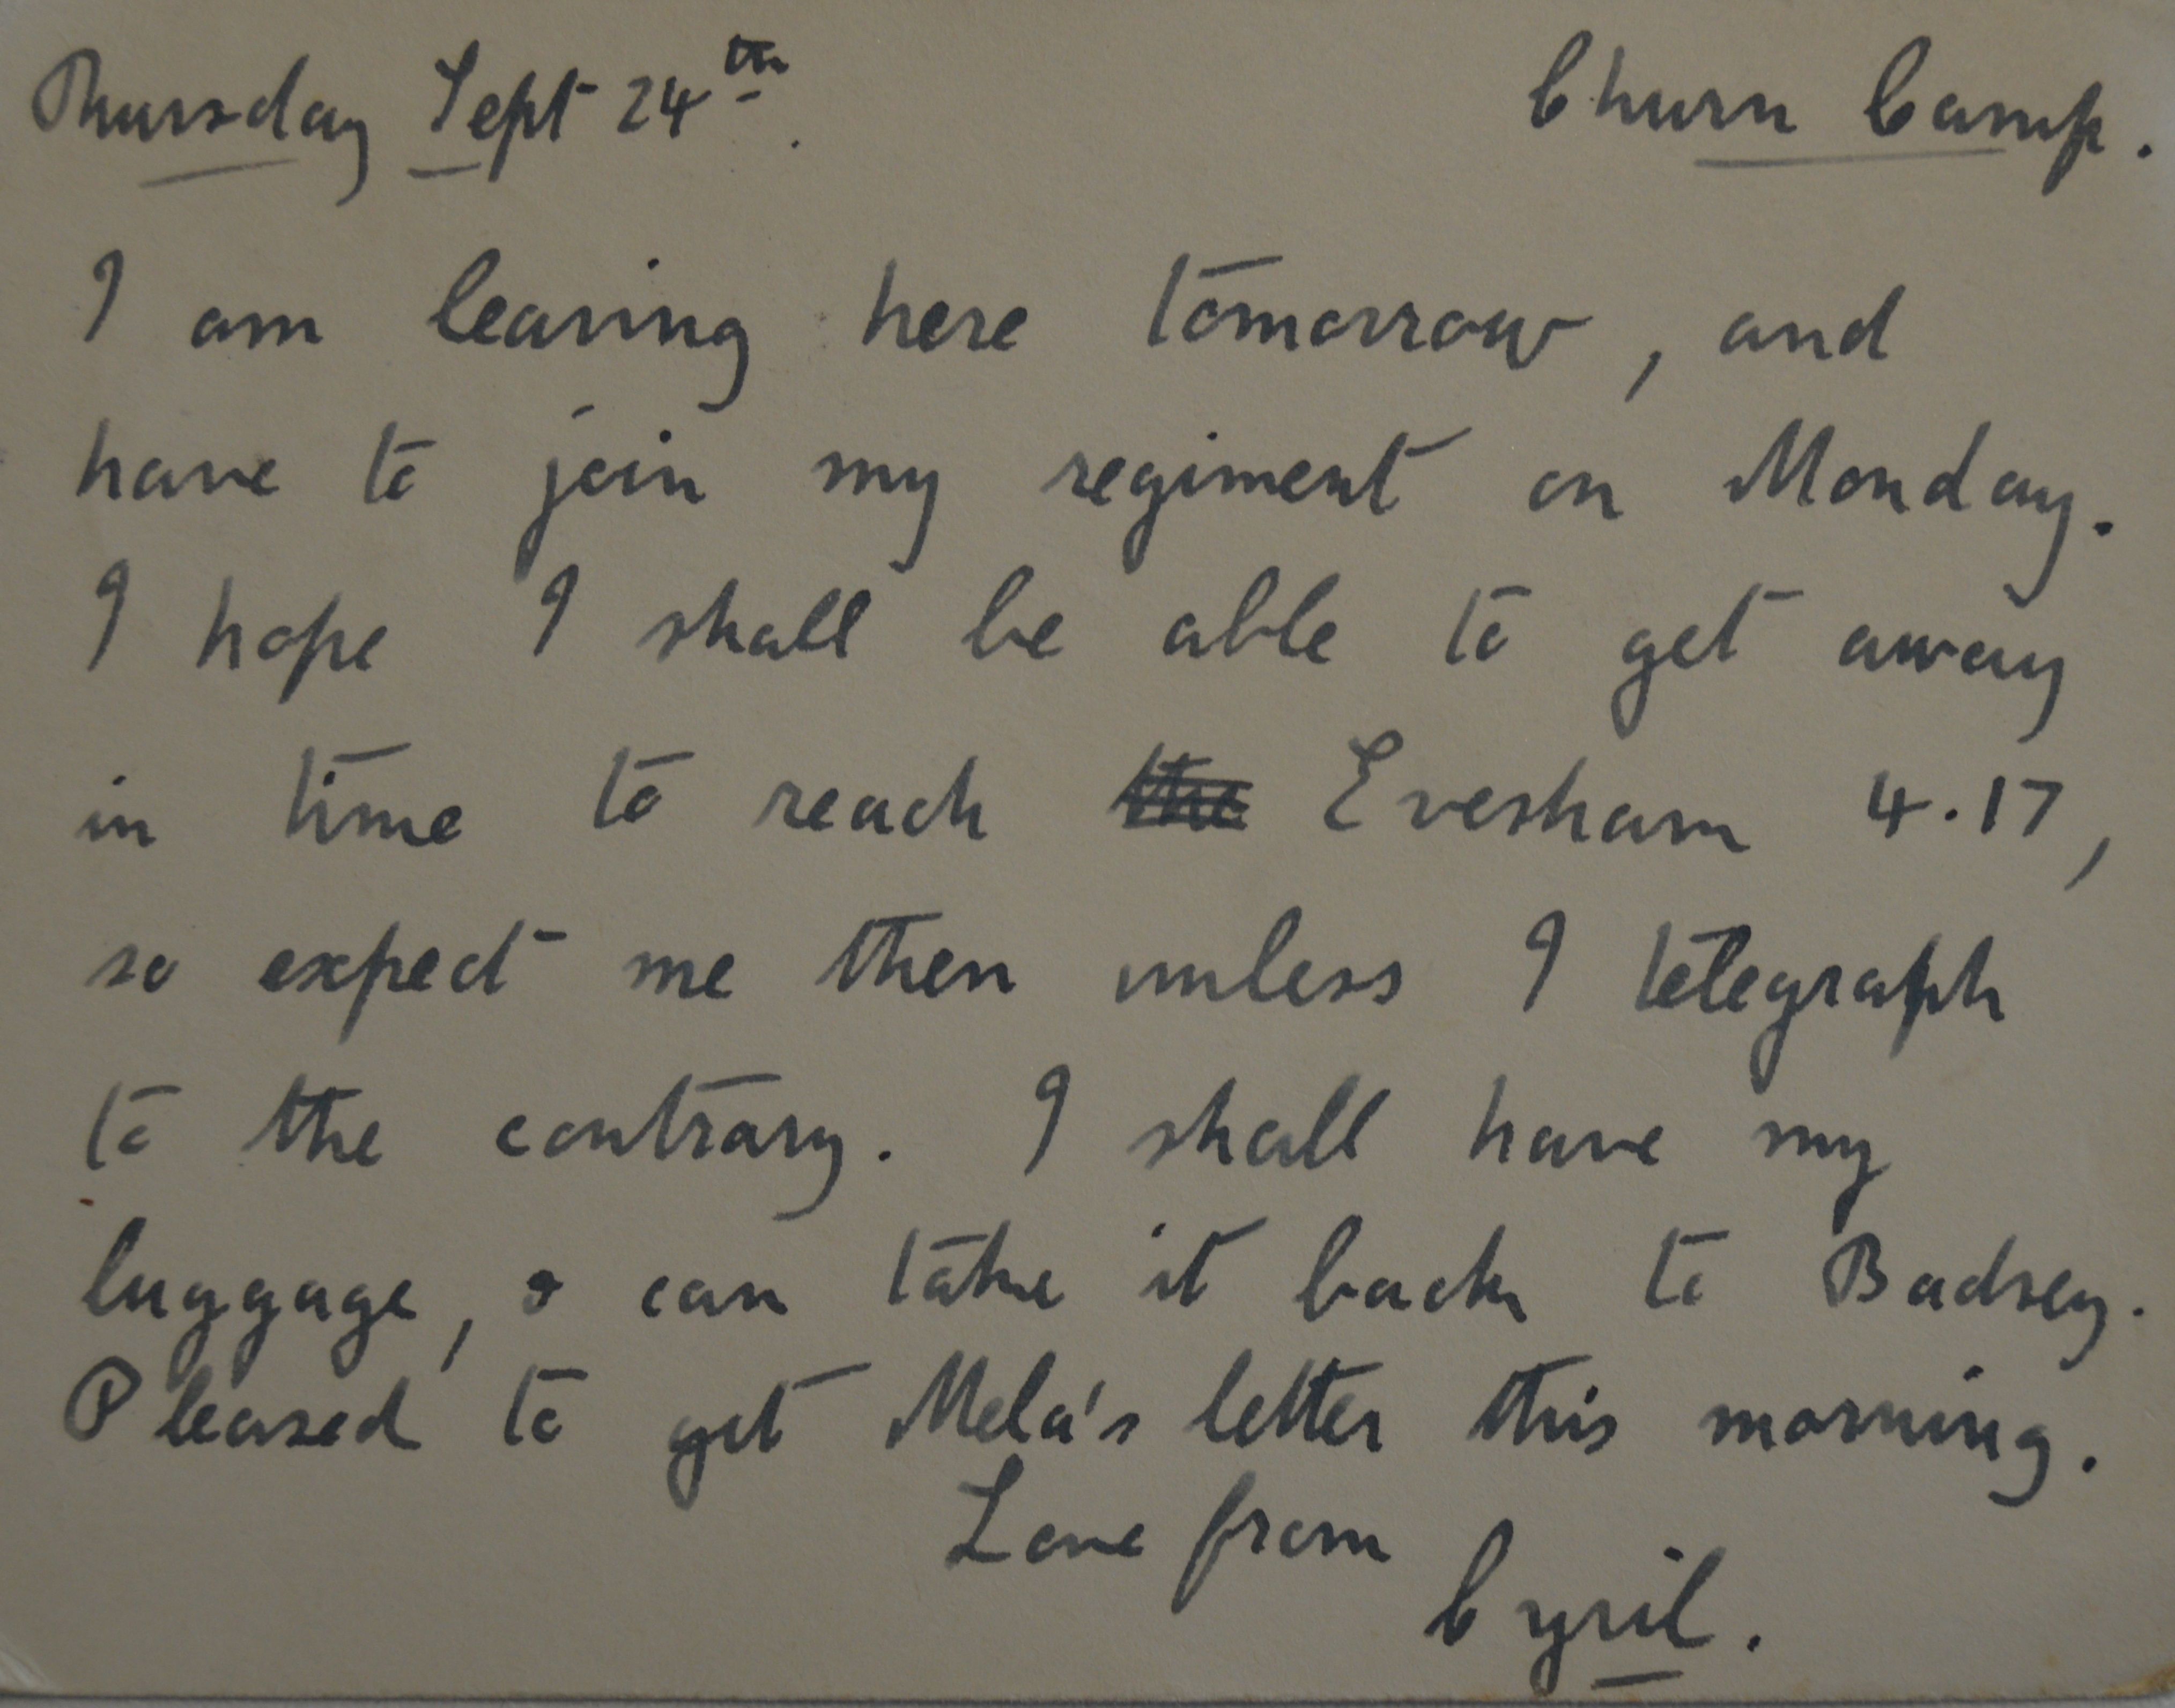 Thursday Sept 24th. Churn Camp.
I am leaving here tomorrow, and
have to join my regiment on Monday.
I hope I shall be able to get away
in time to reach the Evesham 4.17,
so expect me then unless I telegraph
to the contrary. I shall have my
luggage, & can take it back to Badsey.
Pleased to get Mela's letter this morning.
Love from
Cyril.